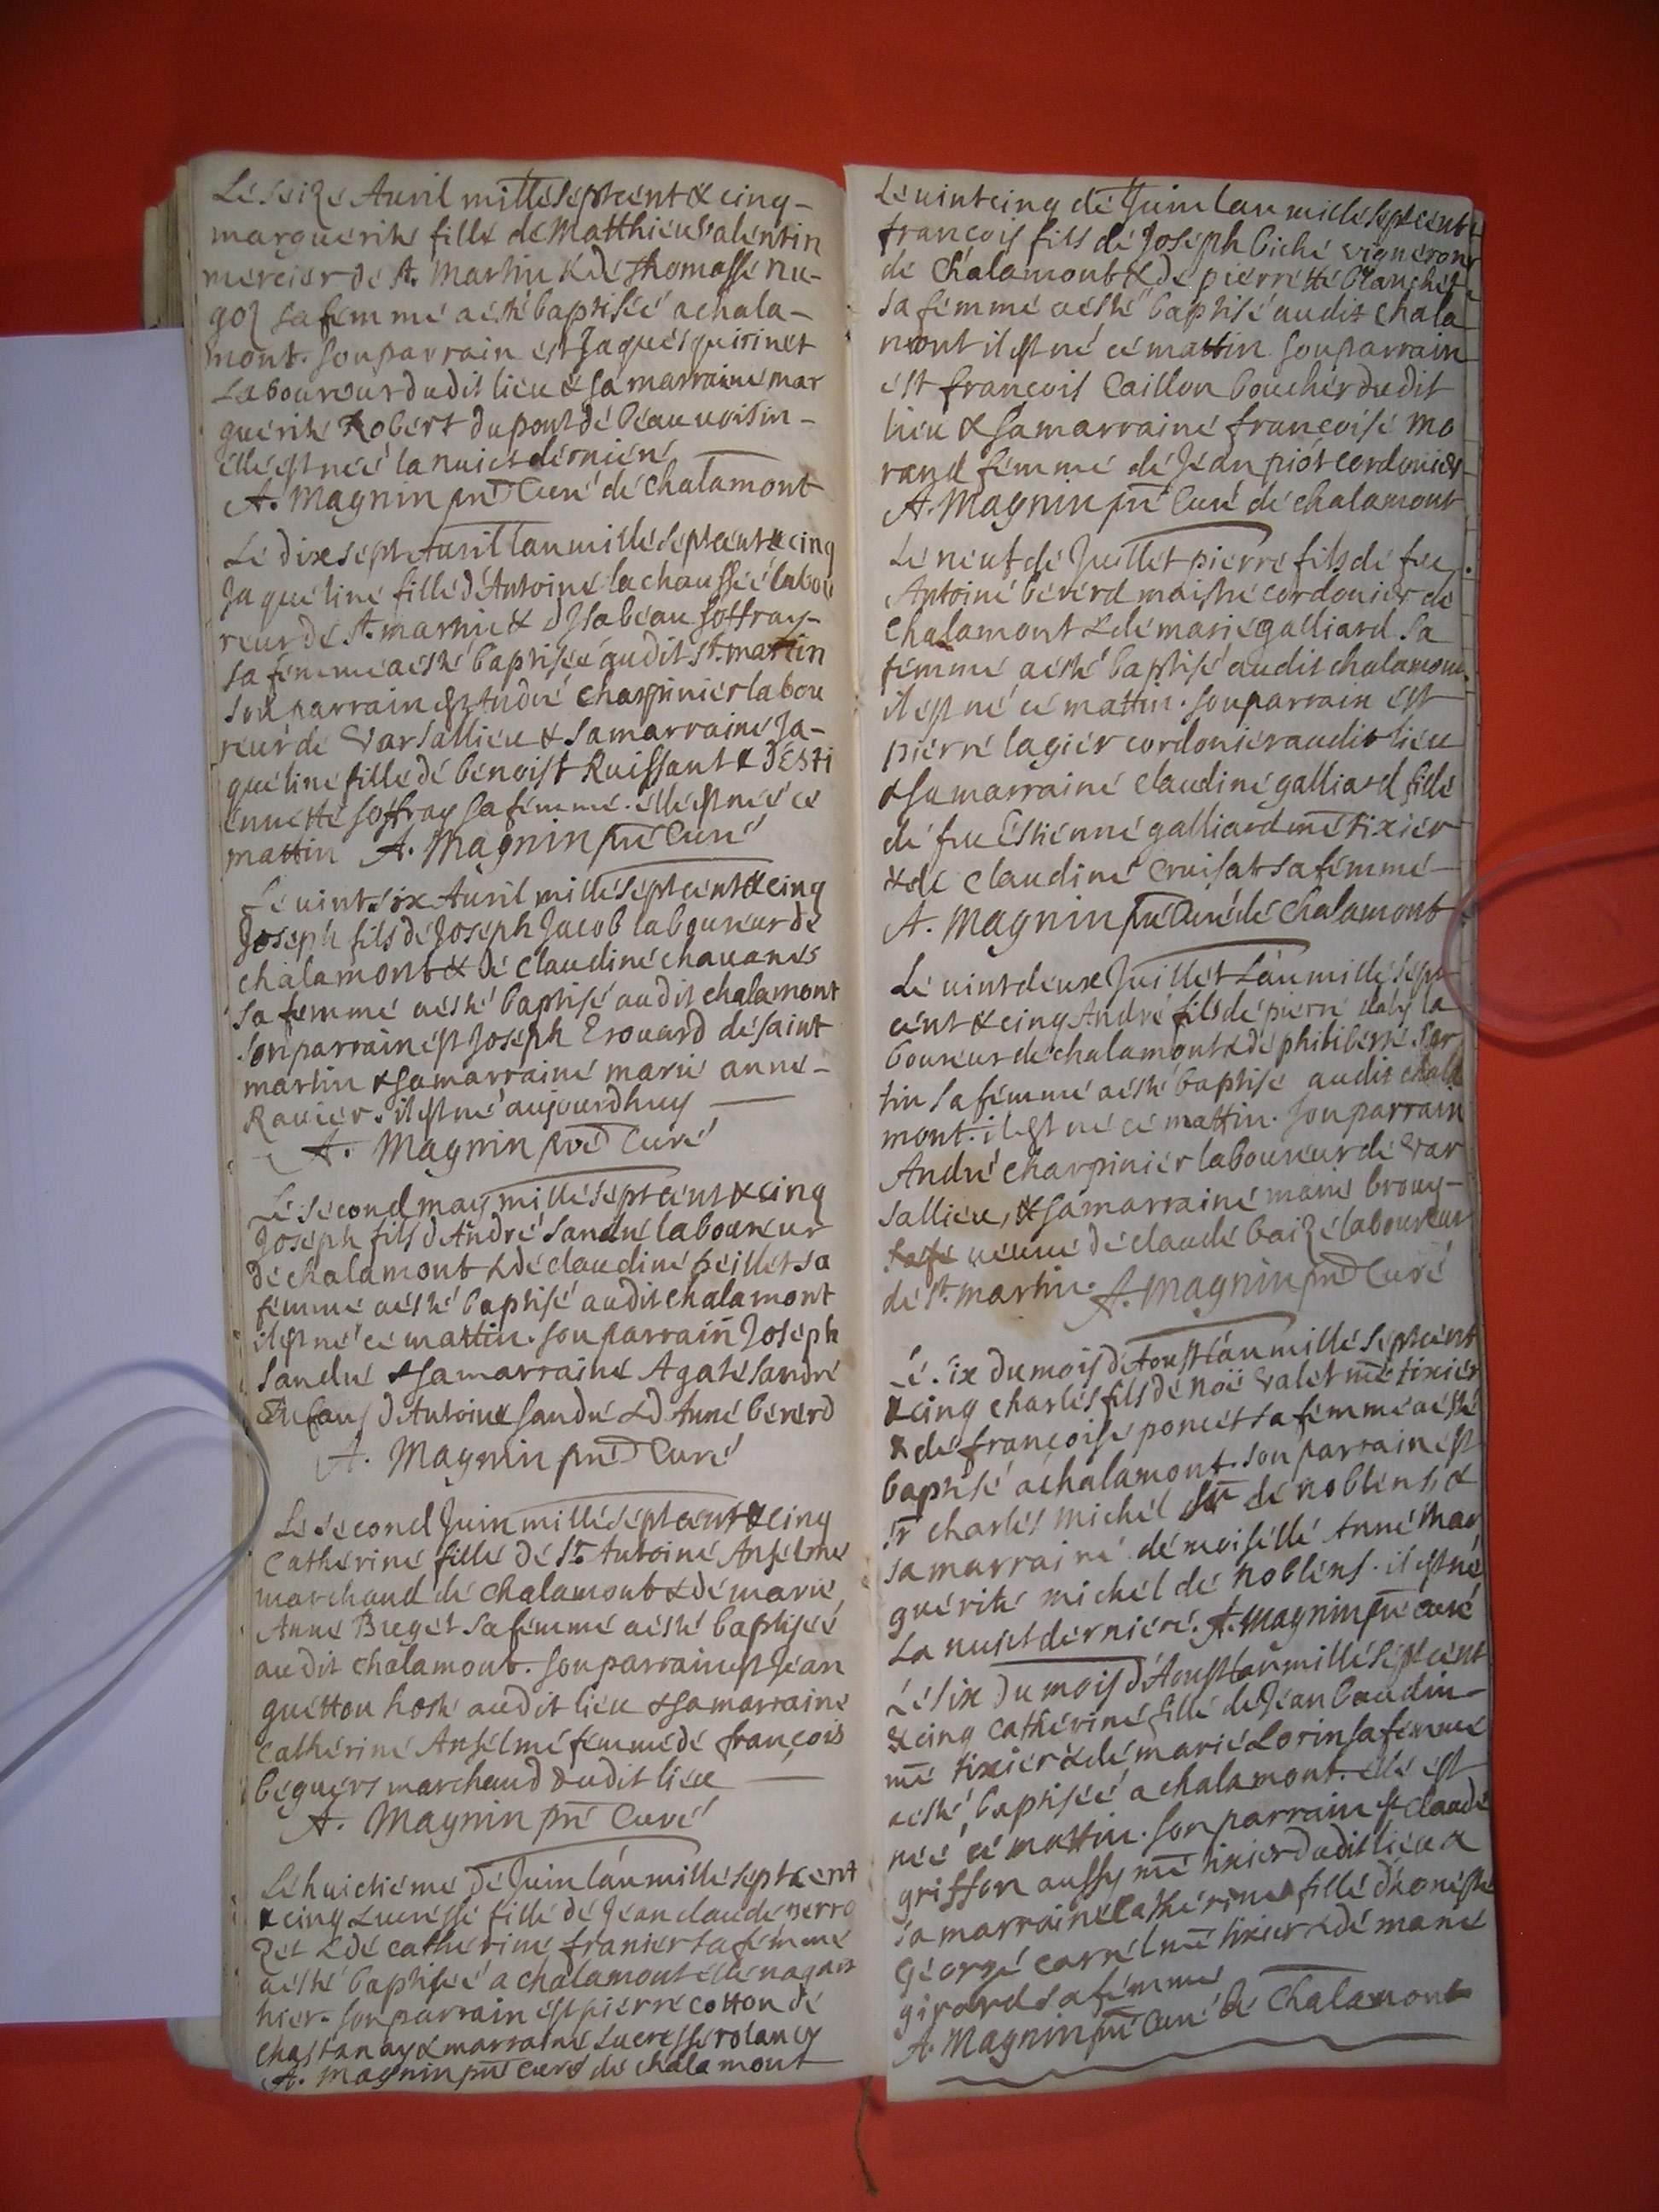 Le seize Auril mille sept cent & cinq-
marguerite fille de Matthieu Valentin
mercier de St. Martin & de thomasse nu-
goz sa femme a esté baptisée a chala-
mont. son parrain est Jaques quirinet
Laboureur dudit lieu & sa marraine mar
guerite Robert du pont de beauuoisin-
elle est née la nuict derniere
A. Magnin pre Curé de chalamont
Le dixsept Auril l'an mille sept cent & cinq
Jaqueline fille d'Antoine la chaussée labou
reur de St. martin & d'Isabeau soffray-
sa femme a esté baptisée audit St. martin
son parrain est André charpinier labou
reur de Varsallieu & sa marraine Ja-
queline fille de benoist Ruissant & d'Esti
ennette soffray sa femme. elle est née ce
mattin A. Magnin pre Curé
Le uint six Auril mille sept cent & cinq
Joseph fils de Joseph Jacob laboureur de
chalamont & de claudine chauanes
sa femme a esté baptisé audit chalamont
son parrain est Joseph Erouard de saint
martin & sa marraine marie anne-
Rauier. il est né aujourdhuy
A. Magnin pre Curé
Le second may mille sept cent & cinq
Joseph fils d'André sandre laboureur
de chalamont & de claudine peillet sa
femme a esté baptisé audit chalamont
il est né ce mattin. son parrain Joseph
sandre & sa marraine Agate sandre
Enfans d'Antoine sandre & d'Anne bererd
A. Magnin pre Curé
Le second Juin mille sept cent & cinq
Catherine fille de Sr. Antoine Anselme
marchand de chalamont & de marie
Anne Breget sa femme a esté baptisée
audit chalamont. son parrain est Jean
guetton hoste audit lieu & sa marraine
Catherine Anselme femme de françois
beguers marchand dudit lieu
A. Magnin pre Curé
Le huictieme de Juin l'an mille sept cent
& cinq Lucresse fille de Jean claude perro
zet & de catherine franier sa femme
a esté baptisée a chalamont elle naquit
hier. son parrain est pierre cotton de
chastanay & marraine Lucresse rolancy
A. Magnin pre Curé de chalamont
Le uintcinq de Juin l'an mille sept cent
françois fils de Joseph biché vigneron
de chalamont & de pierrette blanchet
sa femme a esté baptisé audit chala
mont il est né ce mattin. son parrain
est françois Caillon boucher dudit
lieu & sa marraine françoise mo
rand femme de Jean piot cordonier
A. Magnin pre Curé de chalamont
Le neuf de Juillet pierre fils de feu
Antoine bererd maistre cordonier de
chalamont & de marie galliard sa
femme a esté baptisé audit chalamont
il est né ce mattin. son parrain est
pierre lagier cordonier audit lieu
& sa marraine claudine galliard fille
de feu Estienne galliard me tixier
& de claudine cruisat sa femme
A. Magnin pre Curé de chalamont
Le uintdeux Juillet L'an mille sept
cent & cinq André fils de pierre la
boureur de chalamont & de philiberte Sar
tin sa femme a esté baptisé audit chala
mont. il est né ce mattin. son parrain
André charpinier laboureur de Var
sallieu, & sa marraine marie brouy-
ueuue de claude baizé laboureur
de St. martin. A. Magnin pre Curé
Le six du mois d'Aoust l'an mille sept cent
& cinq charles fils de noë Valet me tixier
& de françoise poncet sa femme a esté
baptisé a chalamont. son parrain est
Sr charles michel Sr de noblens &
sa marraine demoiselle Anne mar
guerite michel de noblens. il est né
La nuict derniere. A. Magnin pre curé
Le six du mois d'Aoust l'an mille sept cent
& cinq catherine fille de Jean baudin-
me tixier & de marie Lorin sa femme
a esté baptisée a chalamont. elle est
née ce mattin. son parrain est claude
griffon aussy me tixier dudit lieu &
sa marraine catherine fille d'honeste
George carrel me tixier & de marie
girard sa femme
A. Magnin pre Curé de chalamont